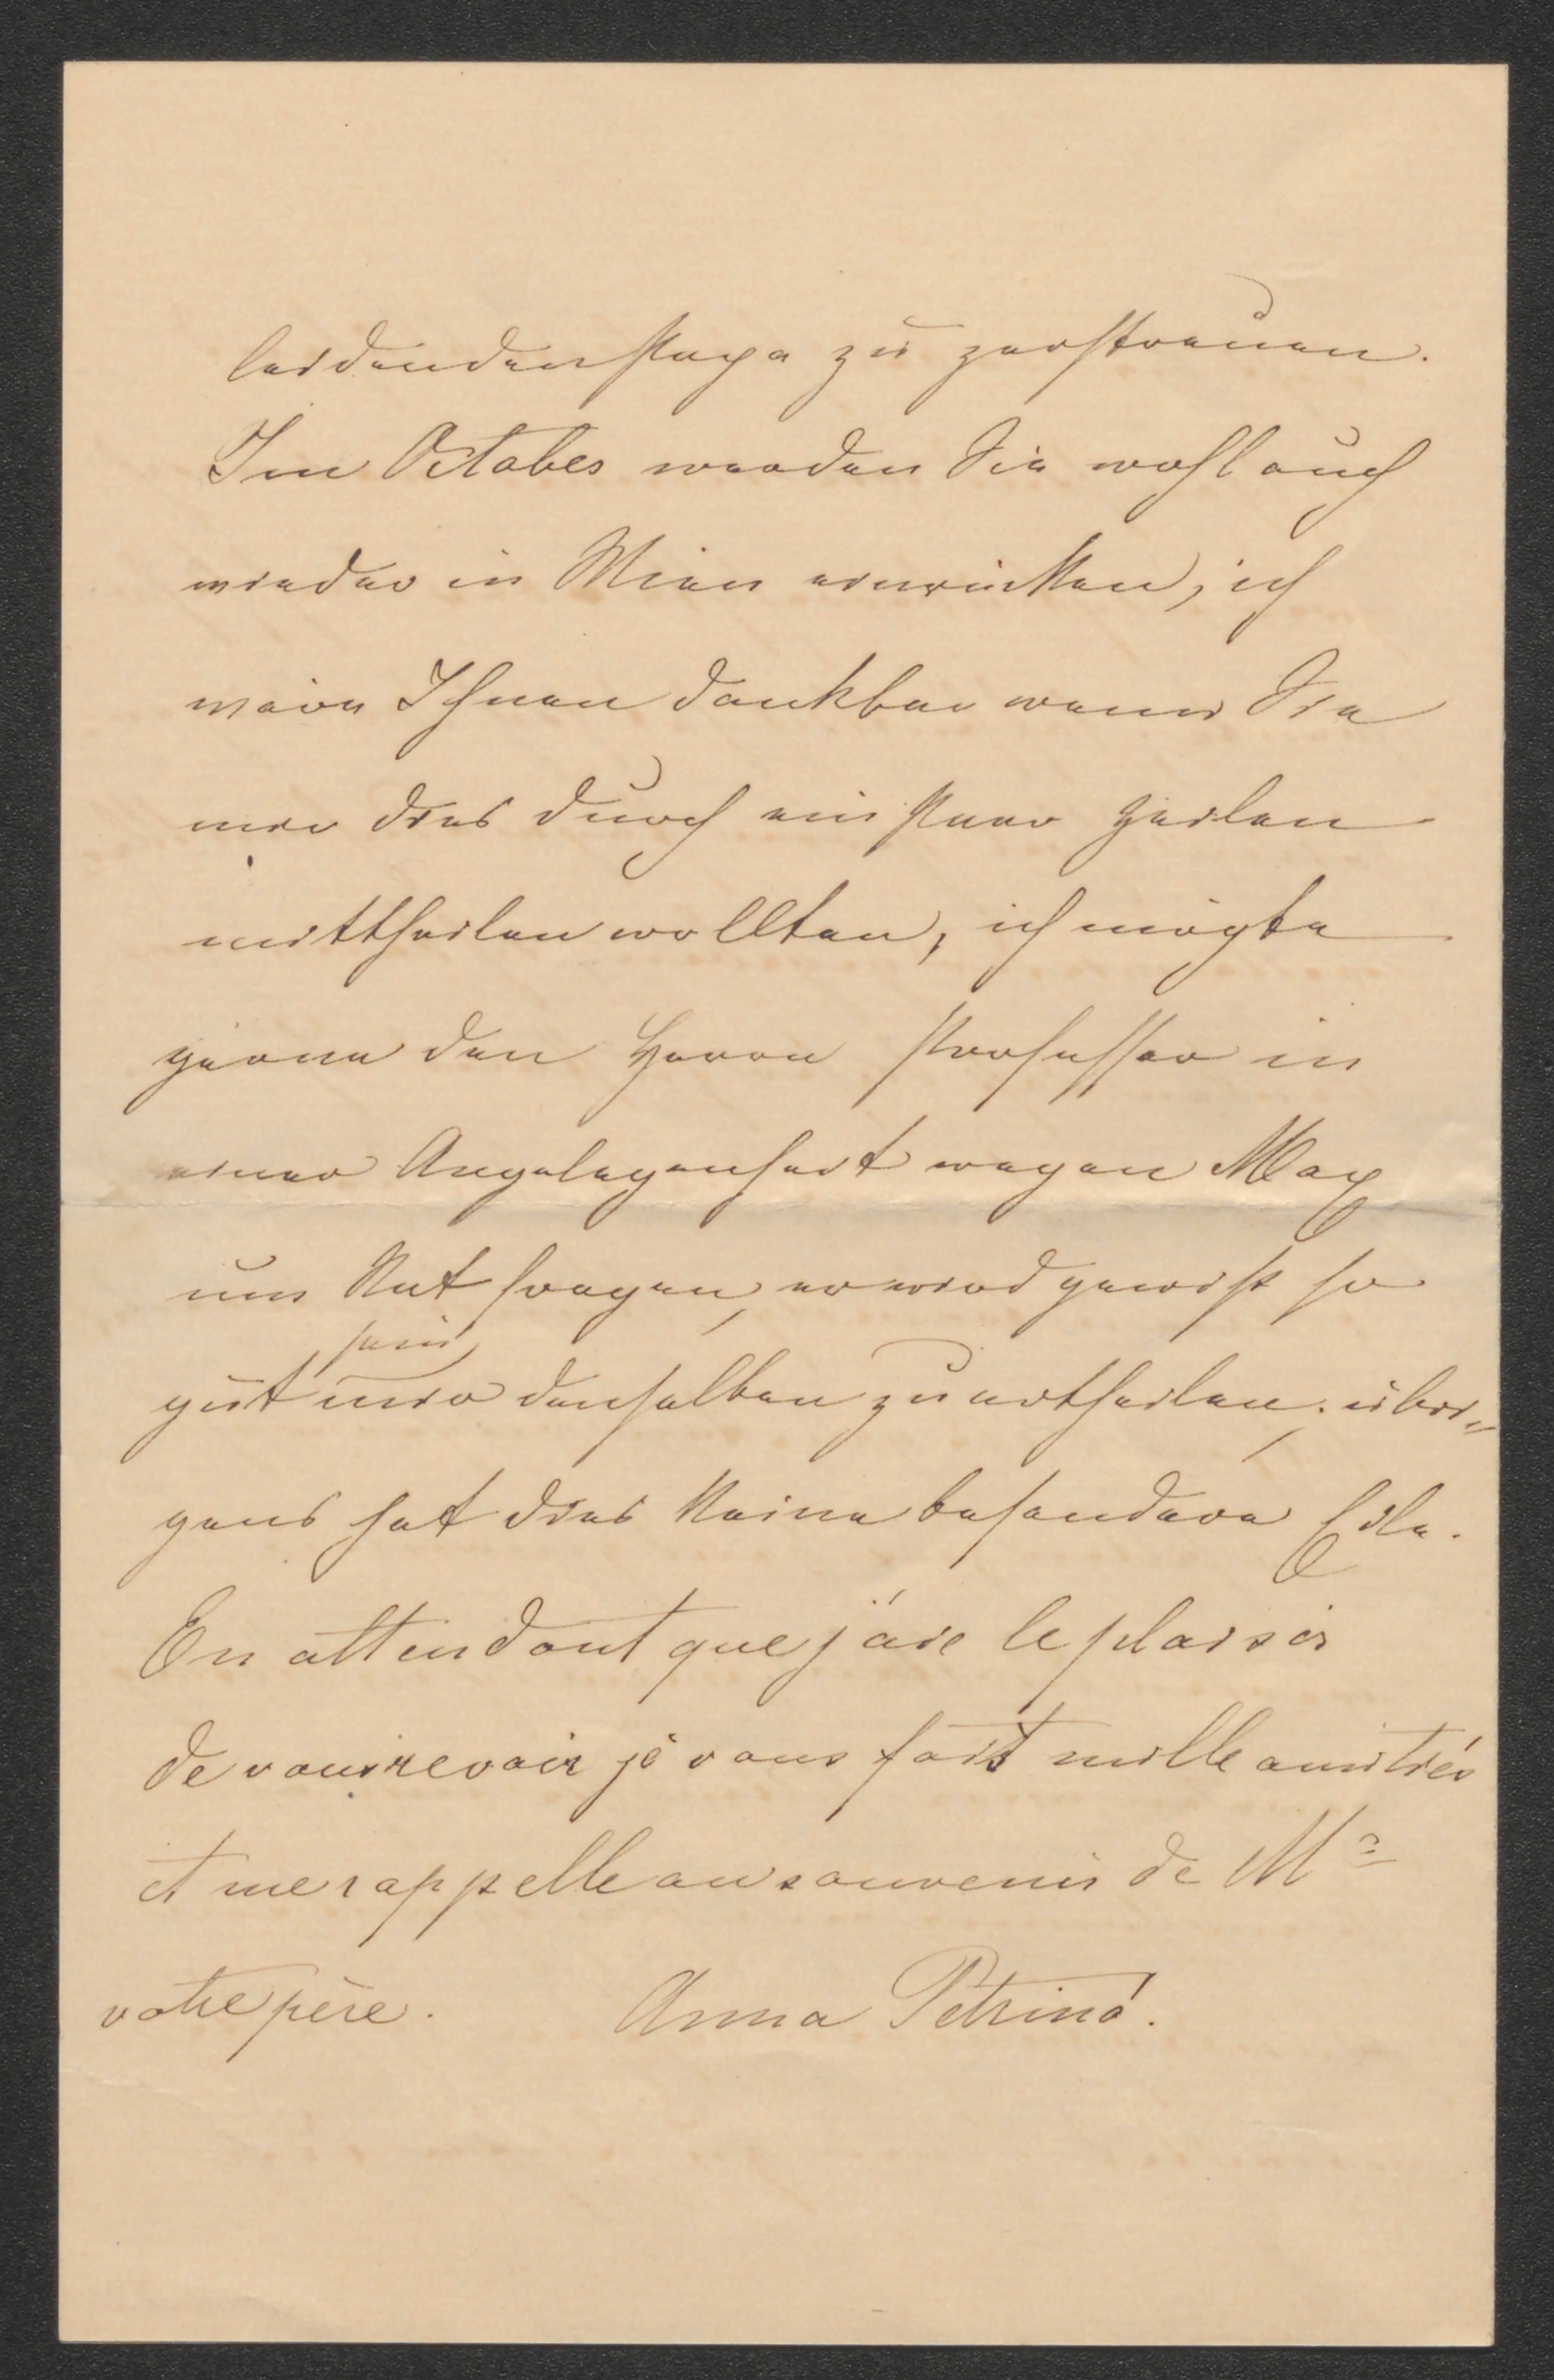 leidenden Papa zu zerstreuen.
Im October werden Sie wohl auch
wieder in Wien einrücken, ich
wäre Ihnen dankbar wenn Sie
mir dies durch ein Paar Zeilen
mittheilen wollten, ich mögte
gerne den Herrn Professor in
einer Angelegenheit wegen Max
um Rat fragen, er wird gewiß so
gut sein mir denselben zu ertheilen. übri=
gens hat dies keine besondere Eile.
En attendant que j'aie le plaisir
de vous revoir je vous fait mille amitiés
et me rappelle au souvenir de Mr
votre père. Anna Petrinó.